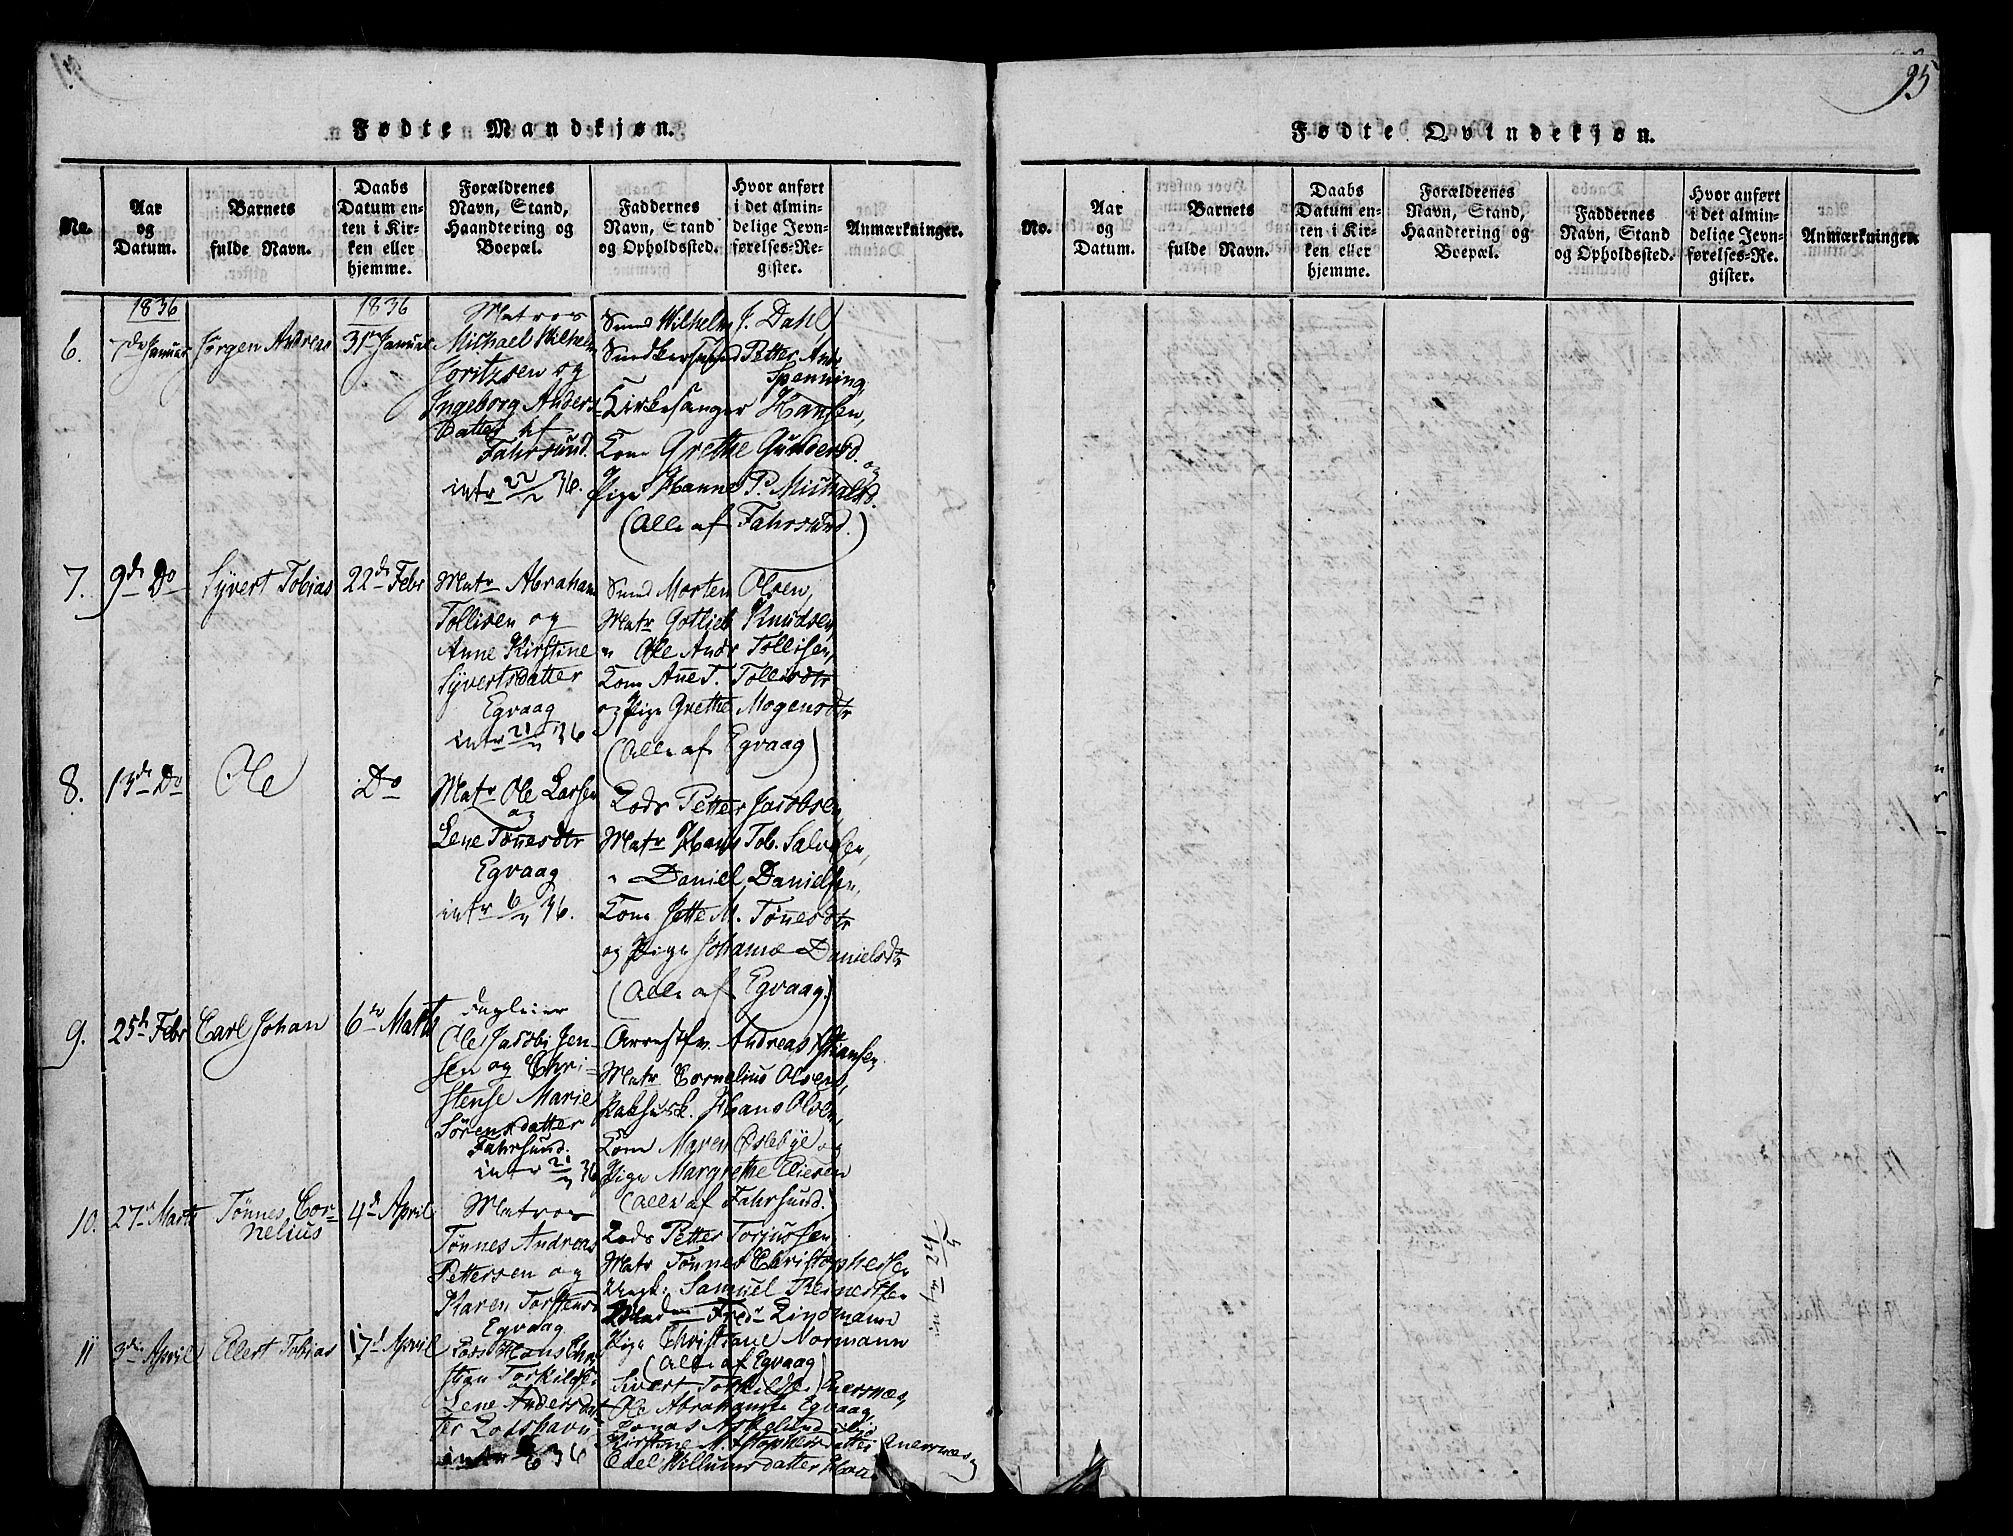 95
Fødte Mandkjøn.
No.
Aar
og
Datum.
Barnets
fulde Navn.
Daabs
Datum en-
ten i Kir-
ken eller
hjemme.
Forældrenes
Navn, Stand,
Haandtering og
Boepæl.
Faddernes
Navn, Stand
og Opholdssted.
Hvor anført
i det almin-
delige Jevn-
førelses-Re-
gister.
Anmærkninger.
1836
6.
7de Januar
Jørgen Andreas
1836
31te Januar
Matros
Michael Wilhelm
Joritzsen og
Ingeborg Anders
Datter af
Fahrsund.
intr 22/2 36.
Smed Wilhelm J. Dahl
Snedkersvend Petter Ands
Spenning
Kirkesanger Hansen,
Kone Grethe Gundersd.
og
Pige Hanne P. Michalsd.
(Alle af Fahrsund.)
7.
9de Do
Syvert Tobias
22de Febr
Matr Abraham
Tollisen og
Anne Kirstine
Syvertsdatter
Egvaag
intr 36
Smed Morten Olsen,
Matr Gotlieb Knudsen,
" Ole Andr Tollisen,
Kone Ane T. Tollisdtr
og Pige Grethe Mogensdtr
(Alle af Egvaag)
8.
13de Do
Ole
Do
Matr Ole Larsen
og
Lene Tønesdtr
Egvaag
intr 36.
Lods Petter Jacobsen,
Matr Hans Tob. Salvesen,
" Daniel Danielsen,
Kone Jette M. Tønesdtr
og Pige Johanne Danielsdtr
(Alle af Egvaag.)
9.
25de Febr
Carl Johan
6te Marts
Dagleier
Ole Jacob Jen-
sen og Chri-
stense Marie
Sørensdatter
Fahrsund.
intr 36
Arrestfv. Andreas Stiansen,
Matr Cornelius Olsen,
Pakhusk. Hans Olsen,
Kone Maren Oslebye og
Pige Margrethe Eliesen
(Alle af Fahrsund.)
10.
27de Marts
Tønnes Cor-
nelius
4de April
Matros
Tønnes Andreas
Pettersen og
Karen Torstens
Egvaag
Lods Petter Torjussen
Matr Tønnes Christophersen
Ungk. Samuel Reinertsen
Madam Fredr Lindmann
Pige Christiane Normann
(Alle af Egvaag)
11
3de April
Elert Tobias
17de April
Lods Hans Chri
stian Torkildsen
Lene Andersdat
ter Lodshavn
intr 36
Sivert Torkildsen Enersnes
Ole Abrahamsen Egvaag,
Kirstine M. Stophersdatter Enersnes
Edel Willumsdatter
Fødte Qvindekjøn.
No.
Aar
og
Datum.
Barnets
fulde Navn.
Daabs
Datum en-
ten i Kir-
ken eller
hjemme.
Forældrenes
Navn, Stand,
Haandtering og
Boepæl.
Faddernes
Navn, Stand
og Opholdssted.
Hvor anført
i det almin-
delige Jevn-
førelses-Re-
gister.
Anmærkninger.